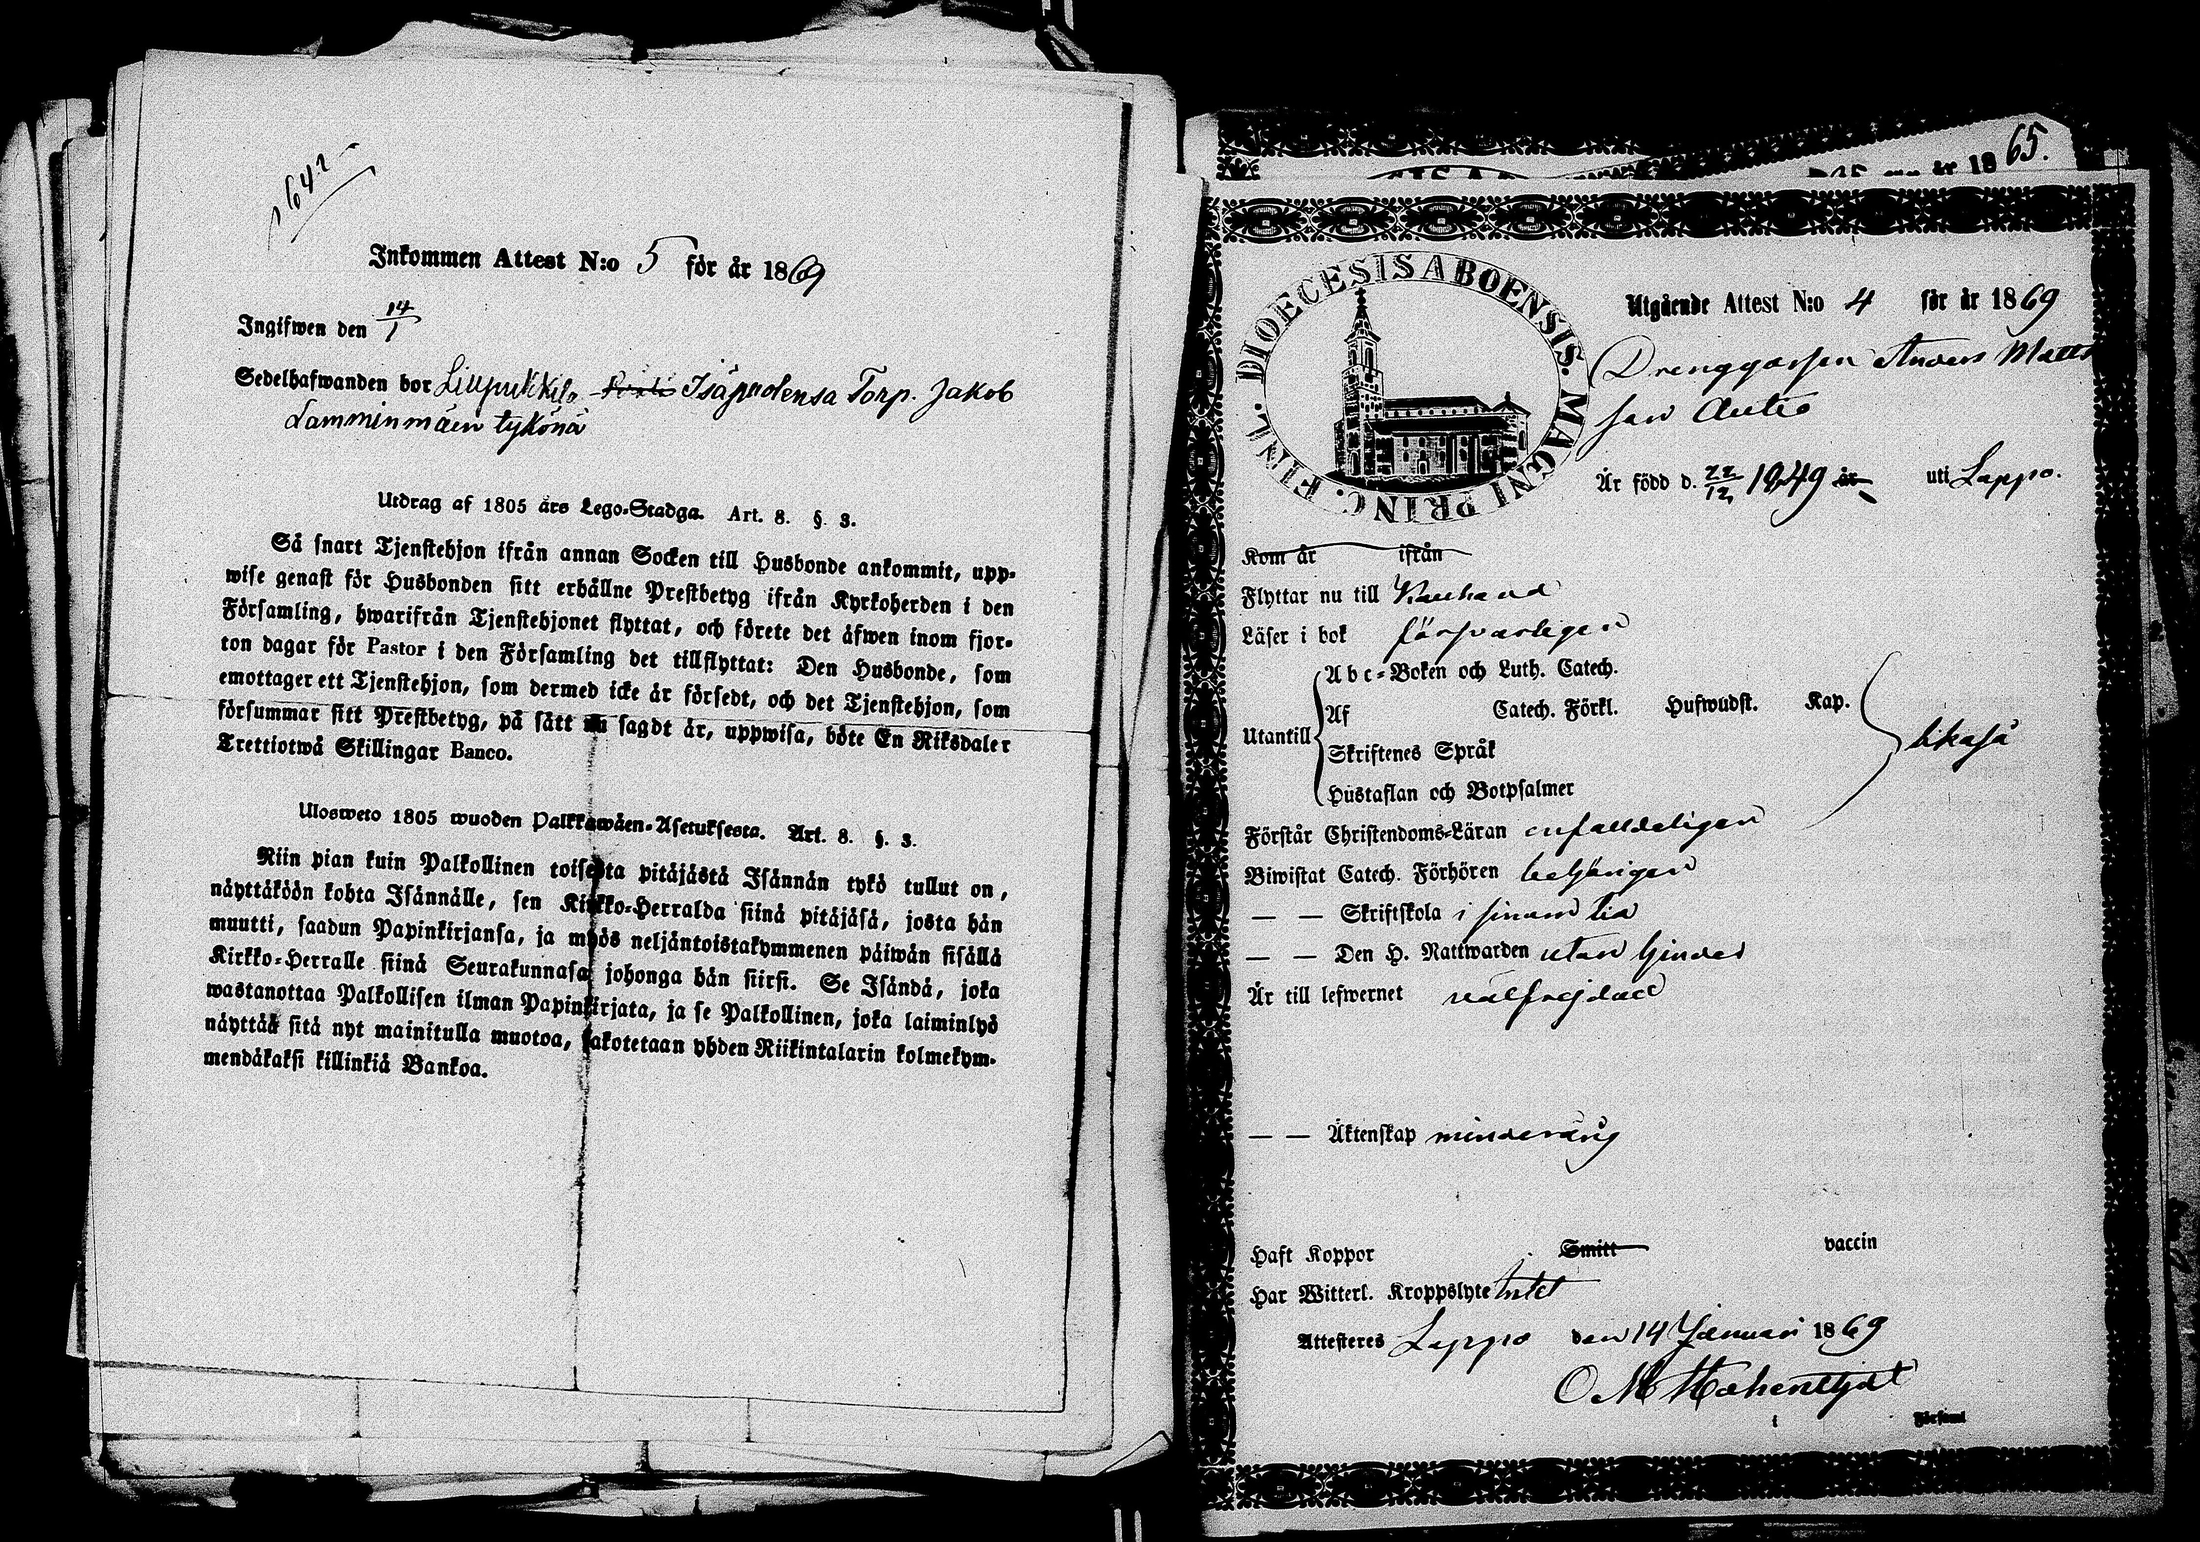 642
Inkommen Attest N:o 5 för år 1869
Ingifwen den 14/1
Sedelhafwanden bor Isäpuolensa Torp. Jakob
Lamminmäen tykönä
Utdrag af 1805 års Lego-Stadga. Art. 8. §. 3.
Så snart Tjenstehjon ifrån annan Socken till Husbonde ankommit, upp-
wise genast för Husbonden sitt erhållne Prestbetyg ifrån Kyrkoherden i den
Församling, hwarifrån Tjenstehjonet flyttat, och förete det äfwen inom fjor-
ton dagar för Pastor i den Församling det tillflyttat: Den Husbonde, som
emottager ett Tjenstehjon, som dermed icke är försedt, och det Tjenstehjon, som
försummar sitt Prestbetyg, på sätt nu sagdt är, uppwisa, böte En Riksdaler
Trettiotwå Skillingar Banco.
Ulosweto 1805 wuoden Palkkawäen-Asetuksesta. Art. 8. §. 3.
Niin pian kuin Palkollinen toisesta pitäjästä Isännän tykö tullut on,
näyttäköön kohta Isännälle, sen Kirkko-Herralda siinä pitäjäsä, josta hän
muutti, saadun Papinkirjansa, ja myös neljäntoistakymmenen päiwän sisällä
Kirkko-Herralle siinä Seurakunnasa johonga hän siirsi. Se Isändä, joka
wastanottaa Palkollisen ilman Papinkirjata, ja se Palkollinen, joka laiminlyö
näyttää sitä nyt mainitulla muotoa, sakotetaan yhden Riikintalarin kolmekym-
mendäkaksi killinkiä Bankoa.
år 1865.
DIOECESIS ABOENSIS. MAGNI PRINC. FINL.
Utgående Attest N:o 4 för år 1869
Drenggossen Anders Matts
son Autio
Är född d. 22/12 1849 år uti Lappo.
Kom år ifrån
Flyttar nu till Kauhava
Läser i bok försvarligen
Abc-Boken och Luth. Catech.
Af Catech. Förkl. Hufwudst. Kap.
Utantill likaså
Skriftenes Språk
Hustaflan och Botpsalmer
Förstår Christendoms-Läran enfalldeligen
Biwistat Catech. Förhören behörigen
— — Skriftskola i sinom tid
— — Den H. Nattwarden utan hinder
Är till lefwernet välfrejdad
— — Äktenskap minderårig
Haft Koppor Smitt vaccin
Har Witterl. Kroppslyte Intet
Attesteres Lappo den 14 Januari 1869
i Församl